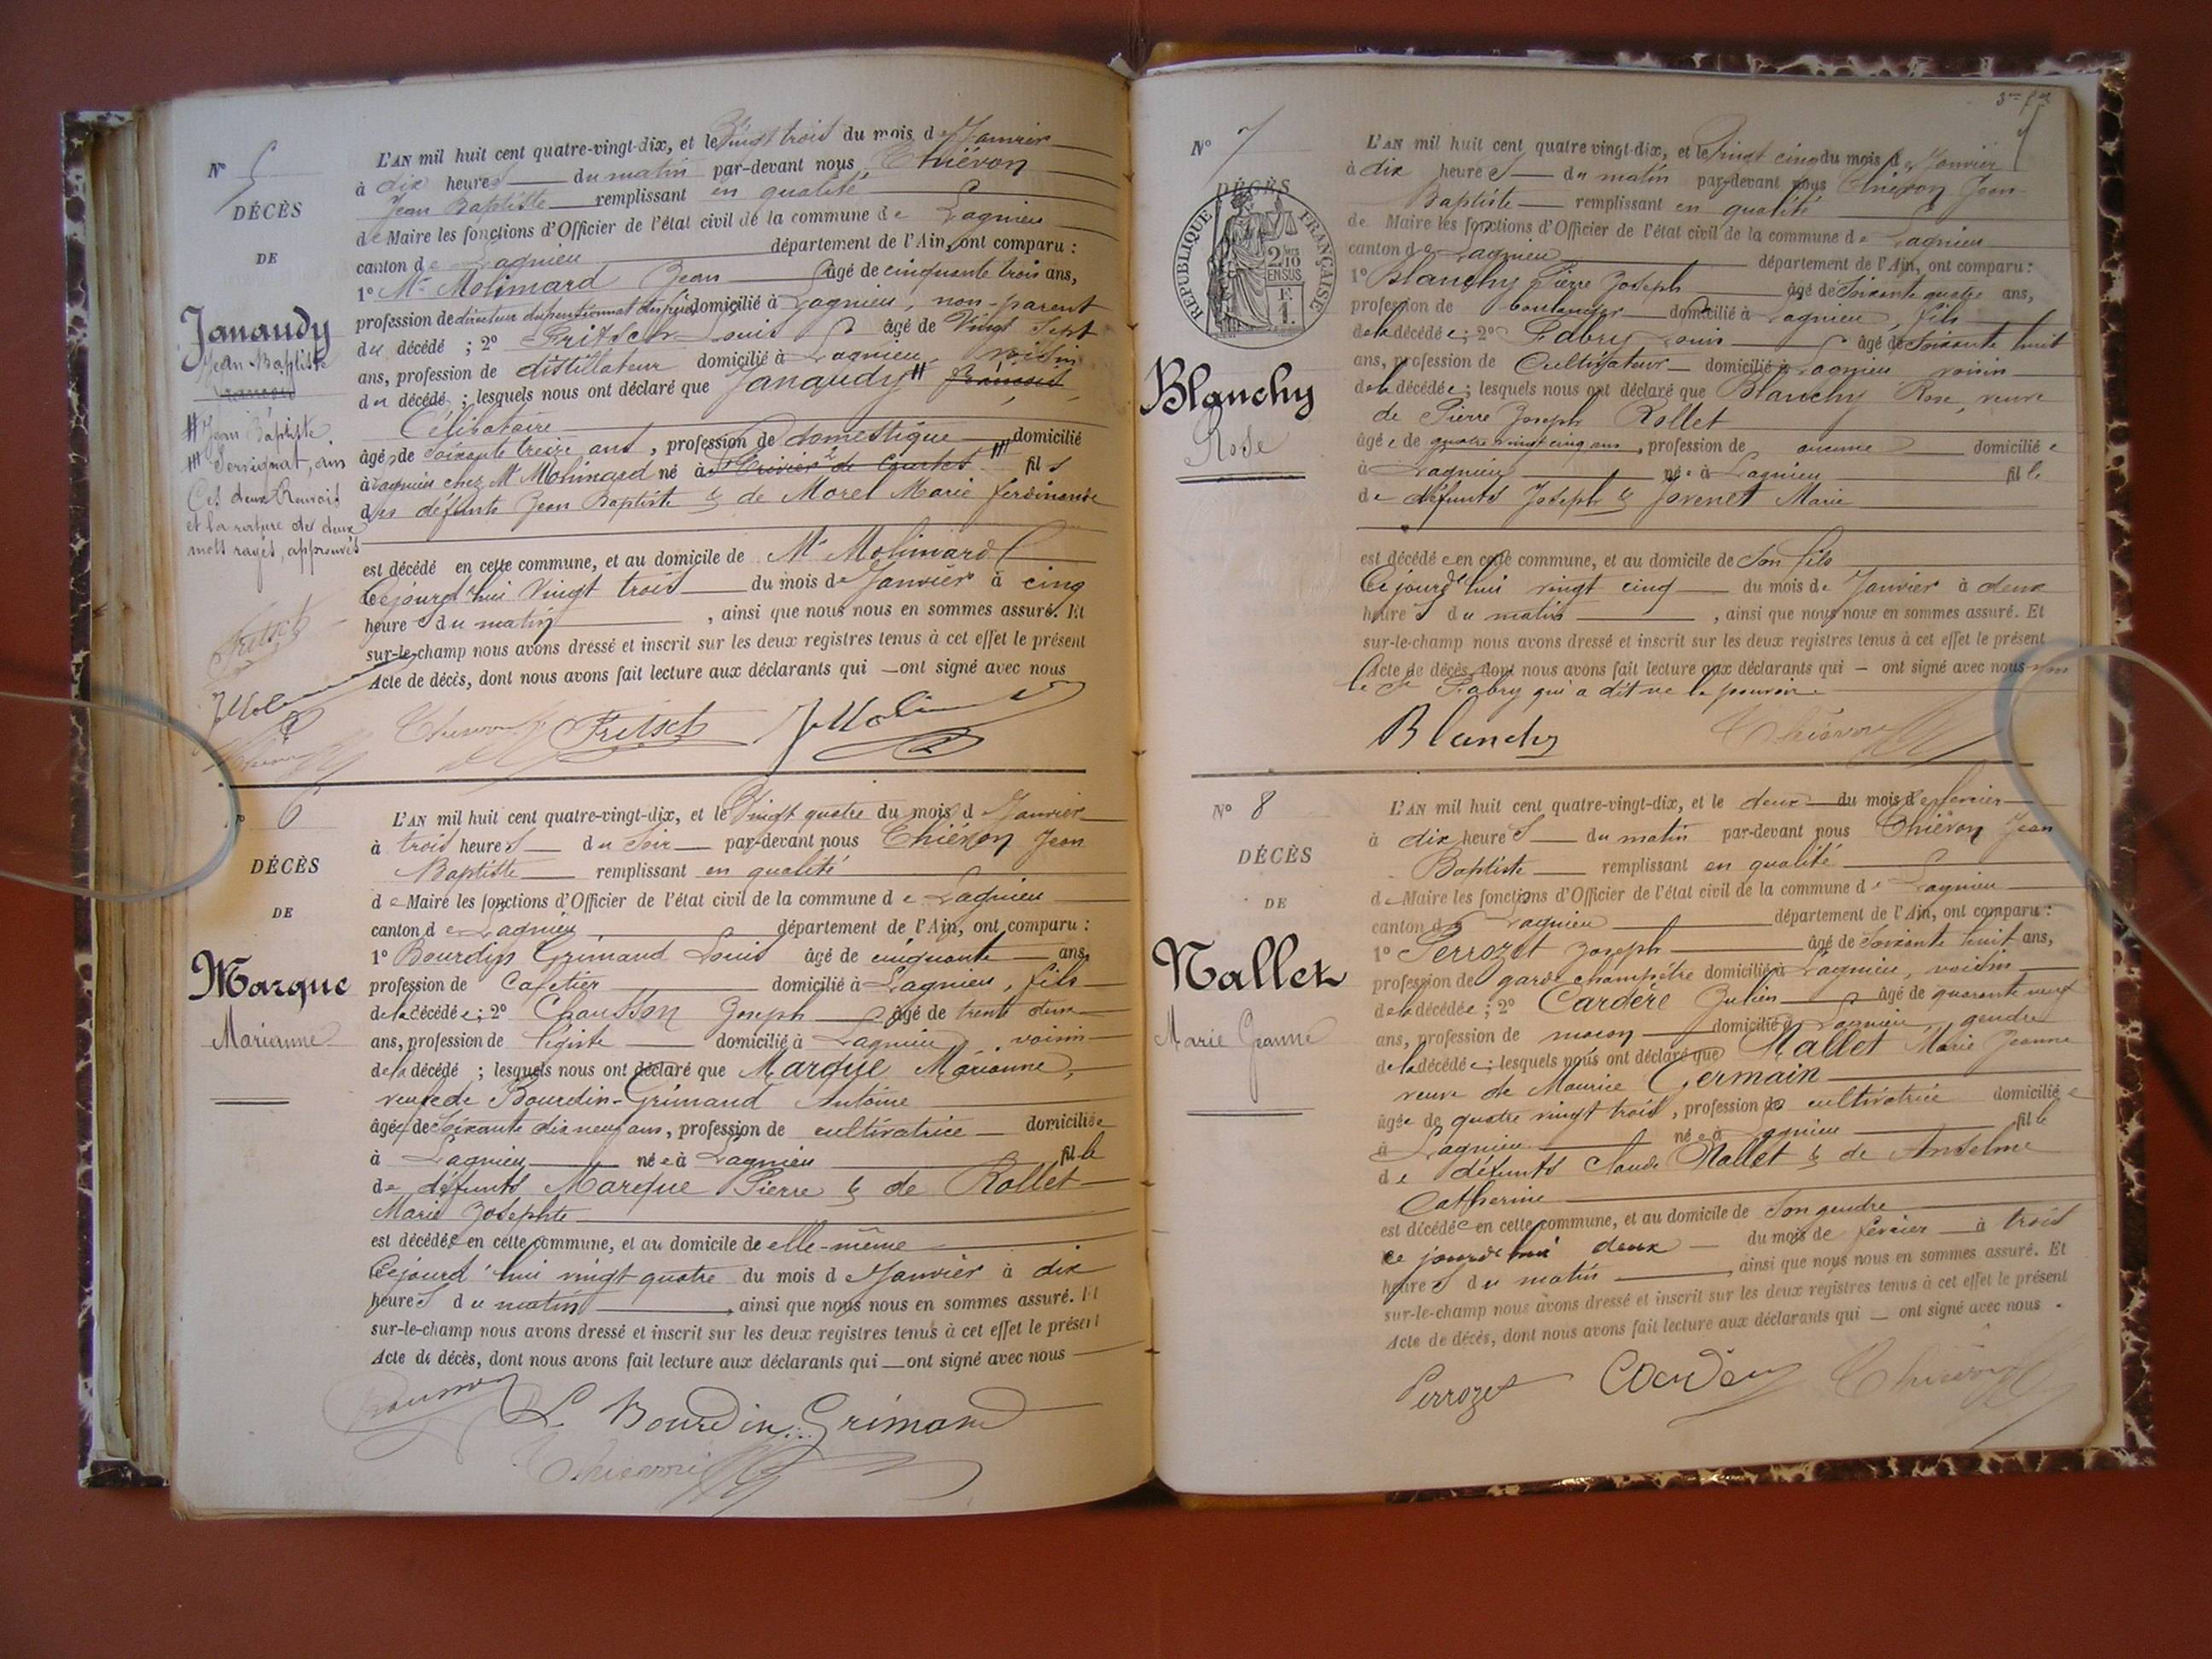 Nº 5
DÉCÈS
DE
Janaudy
Jean Baptiste
# Jean Baptiste
Servignat, ain
Ces deux Renvois
et la rature des deux
mots rayés, approuvés
L'AN mil huit cent quatre-vingt-dix, et le Vingt trois du mois de Janvier
à dix heures du matin par-devant nous Thiévon
Jean Baptiste remplissant en qualité
de Maire les fonctions d'Officier de l'état civil de la commune de Lagnieu
canton de Lagnieu département de l'Ain, ont comparu :
1º Mr Molimard Jean âgé de cinquante trois ans,
profession de directeur du pensionnat des frères domicilié à Lagnieu, non-parent
du décédé ; 2º Fritsch Louis âgé de Vingt Sept
ans, profession de distillateur domicilié à Lagnieu, voisin
du décédé ; lesquels nous ont déclaré que Janaudy # François
Célibataire
âgé de soixante treize ans, profession de domestique domicilié
à Lagnieu chez Mr Molimard né à St Trivier de Courtes fils
des défunts Jean Baptiste & de Morel Marie ferdinande
est décédé en cette commune, et au domicile de Mr Molimard
Cejourd'hui Vingt trois du mois de Janvier à cinq
heures du matin , ainsi que nous nous en sommes assuré. Et
sur-le-champ nous avons dressé et inscrit sur les deux registres tenus à cet effet le présent
Acte de décès, dont nous avons fait lecture aux déclarants qui ont signé avec nous
Fritsch
JMoli
Thiévon
Thiévon Fritsch JMoli
6
DÉCÈS
DE
Marque
Marianne
L'AN mil huit cent quatre-vingt-dix, et le Vingt quatre du mois d Janvier
à trois heures du Soir par-devant nous Thiévon Jean
Baptiste remplissant en qualité
de Maire les fonctions d'Officier de l'état civil de la commune de Lagnieu
canton de Lagnieu département de l'Ain, ont comparu :
1º Bourdin Grimaud Louis âgé de cinquante ans,
profession de Cafetier domicilié à Lagnieu, fils
de la décédée ; 2º Chausson Joseph âgé de trente deux
ans, profession de légiste domicilié à Lagnieu, voisin
de la décédé ; lesquels nous ont déclaré que Marque Marianne,
veuve de Bourdin-Grimaud Antoine
âgée de Soixante dix neuf ans, profession de cultivatrice domiciliée
à Lagnieu née à Lagnieu fille
de défunts Marque Pierre & de Rollet
Marie Josephte
est décédée en cette commune, et au domicile de elle-même
Cejourd'hui vingt quatre du mois d Janvier à dix
heures du matin , ainsi que nous nous en sommes assuré. Et
sur-le-champ nous avons dressé et inscrit sur les deux registres tenus à cet effet le présent
Acte de décès, dont nous avons fait lecture aux déclarants qui ont signé avec nous
Chausson L Bourdin Grimaud
Thiévon
Nº 7
DÉCÈS
RÉPUBLIQUE FRANÇAISE
2/10 EN SUS
F. 1.
Blanchy
Rose
L'AN mil huit cent quatre vingt-dix, et le Vingt cinq du mois de Janvier
à dix heures du matin par-devant nous Thiévon Jean
Baptiste remplissant en qualité
de Maire les fonctions d'Officier de l'état civil de la commune de Lagnieu
canton de Lagnieu département de l'Ain, ont comparu :
1º Blanchy Pierre Joseph âgé de Soixante quatre ans,
profession de boulanger domicilié à Lagnieu, fils
de la décédée ; 2º Fabry Louis âgé de Soixante huit
ans, profession de Cultivateur domicilié à Lagnieu voisin
de la décédée ; lesquels nous ont déclaré que Blanchy Rose, veuve
de Pierre Joseph Rollet
âgée de quatre vingt cinq ans, profession de aucune domiciliée
à Lagnieu née à Lagnieu fille
de défunts Joseph & Jovenet Marie
est décédée en cette commune, et au domicile de Son fils
Cejourd'hui vingt cinq du mois de Janvier à deux
heures du matin , ainsi que nous nous en sommes assuré. Et
sur-le-champ nous avons dressé et inscrit sur les deux registres tenus à cet effet le présent
Acte de décès, dont nous avons fait lecture aux déclarants qui ont signé avec nous non
le Sr Fabry qui a dit ne le pouvoir
Blanchy Thiévon
Nº 8
DÉCÈS
DE
Mallet
Marie Jeanne
L'AN mil huit cent quatre-vingt-dix, et le deux du mois de février
à dix heures du matin par-devant nous Thiévon Jean
Baptiste remplissant en qualité
de Maire les fonctions d'Officier de l'état civil de la commune de Lagnieu
canton de Lagnieu département de l'Ain, ont comparu :
1º Perrozet Joseph âgé de Soixante huit ans,
profession de garde champêtre domicilié à Lagnieu, voisin
de la décédée ; 2º Cardère Julien âgé de quarante neuf
ans, profession de maçon domicilié à Lagnieu, gendre
de la décédée ; lesquels nous ont déclaré que Mallet Marie Jeanne
veuve de Maurice Germain
âgée de quatre vingt trois, profession de cultivatrice domiciliée
à Lagnieu née à Lagnieu fille
de défunts Claude Mallet & de Anselme
Catherine
est décédée en cette commune, et au domicile de Son gendre
ce jourd'hui deux du mois de février à trois
heures du matin , ainsi que nous nous en sommes assuré. Et
sur-le-champ nous avons dressé et inscrit sur les deux registres tenus à cet effet le présent
Acte de décès, dont nous avons fait lecture aux déclarants qui ont signé avec nous.
Perrozet Thiévon